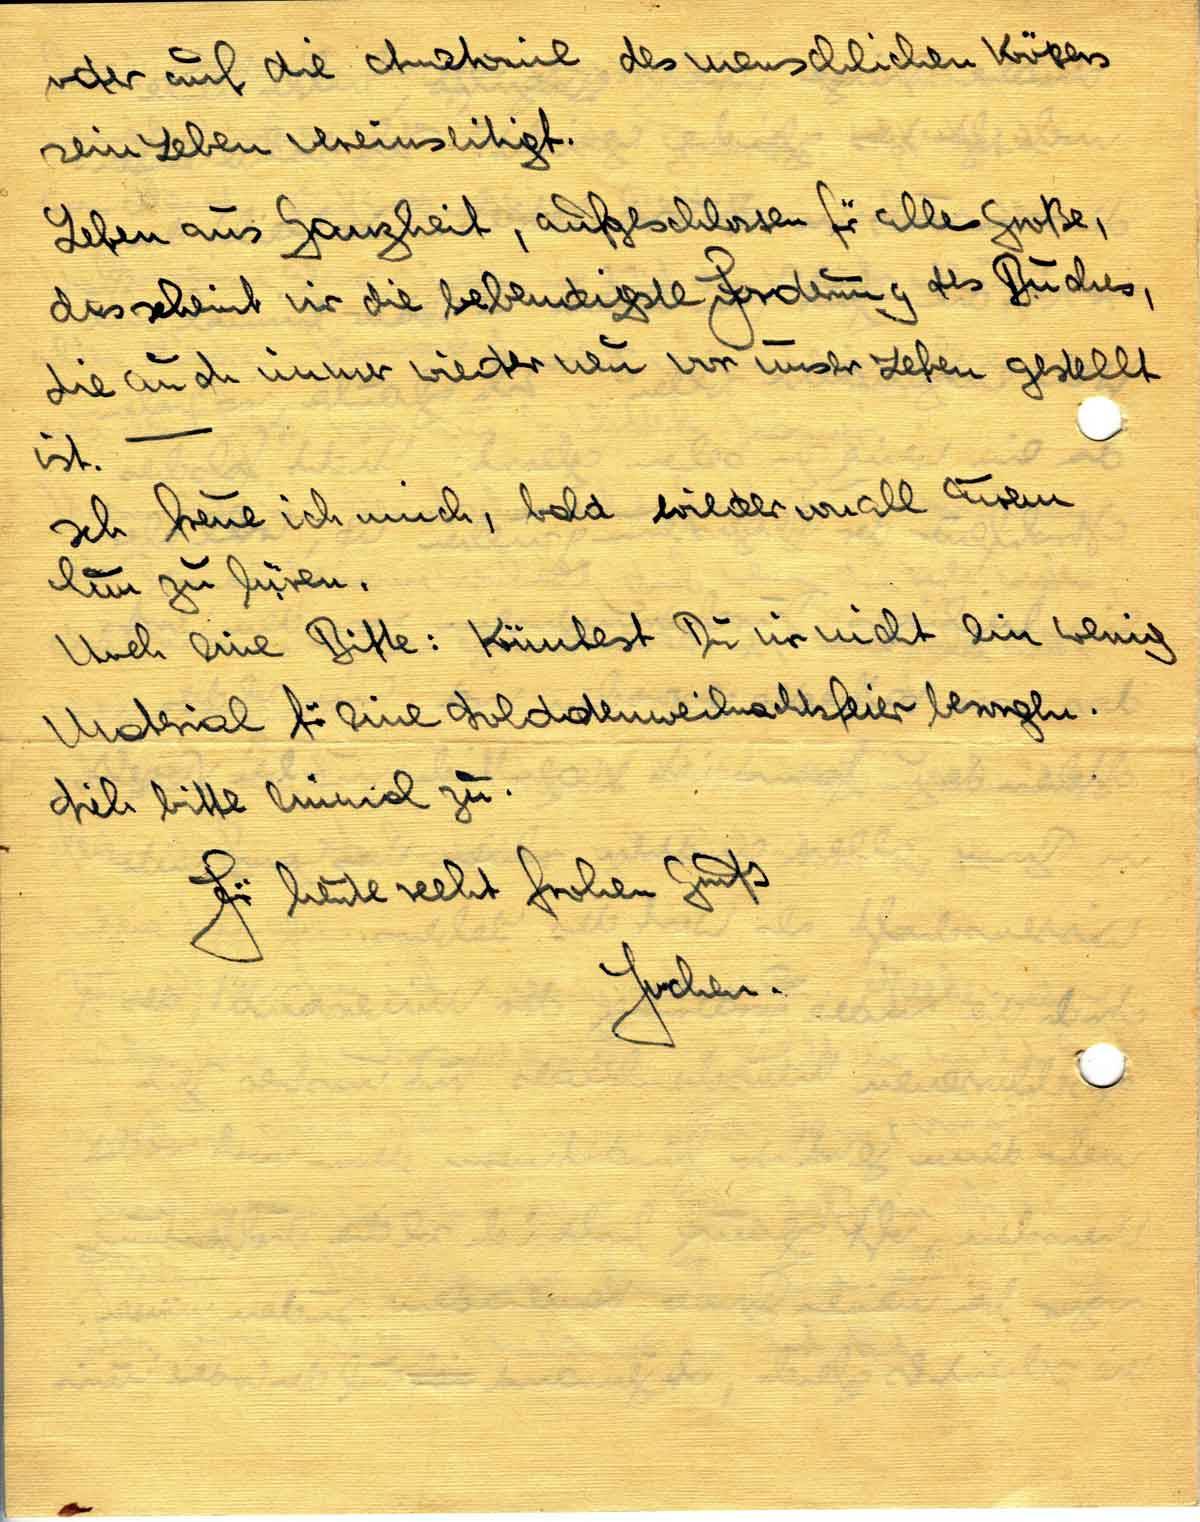 oder auf die Anatomie des menschlichen Köpers
sein Leben vereinseitigt.
Leben aus Ganzheit, aufgeschlossen für alles Große,
das scheint mir die lebendigste Forderung des Buches,
die auch immer wieder neu vor unser Leben gestellt
ist. —
Ich freue ich mich, bald wieder von all Eurem
Tun zu hören.
Noch eine Bitte: Könntest Du mir nicht ein wenig
Material für eine Soldatenweihnachtsfeier besorgen.
Sieh bitte einmal zu.
Für heute recht frohen Gruß
Jochen.